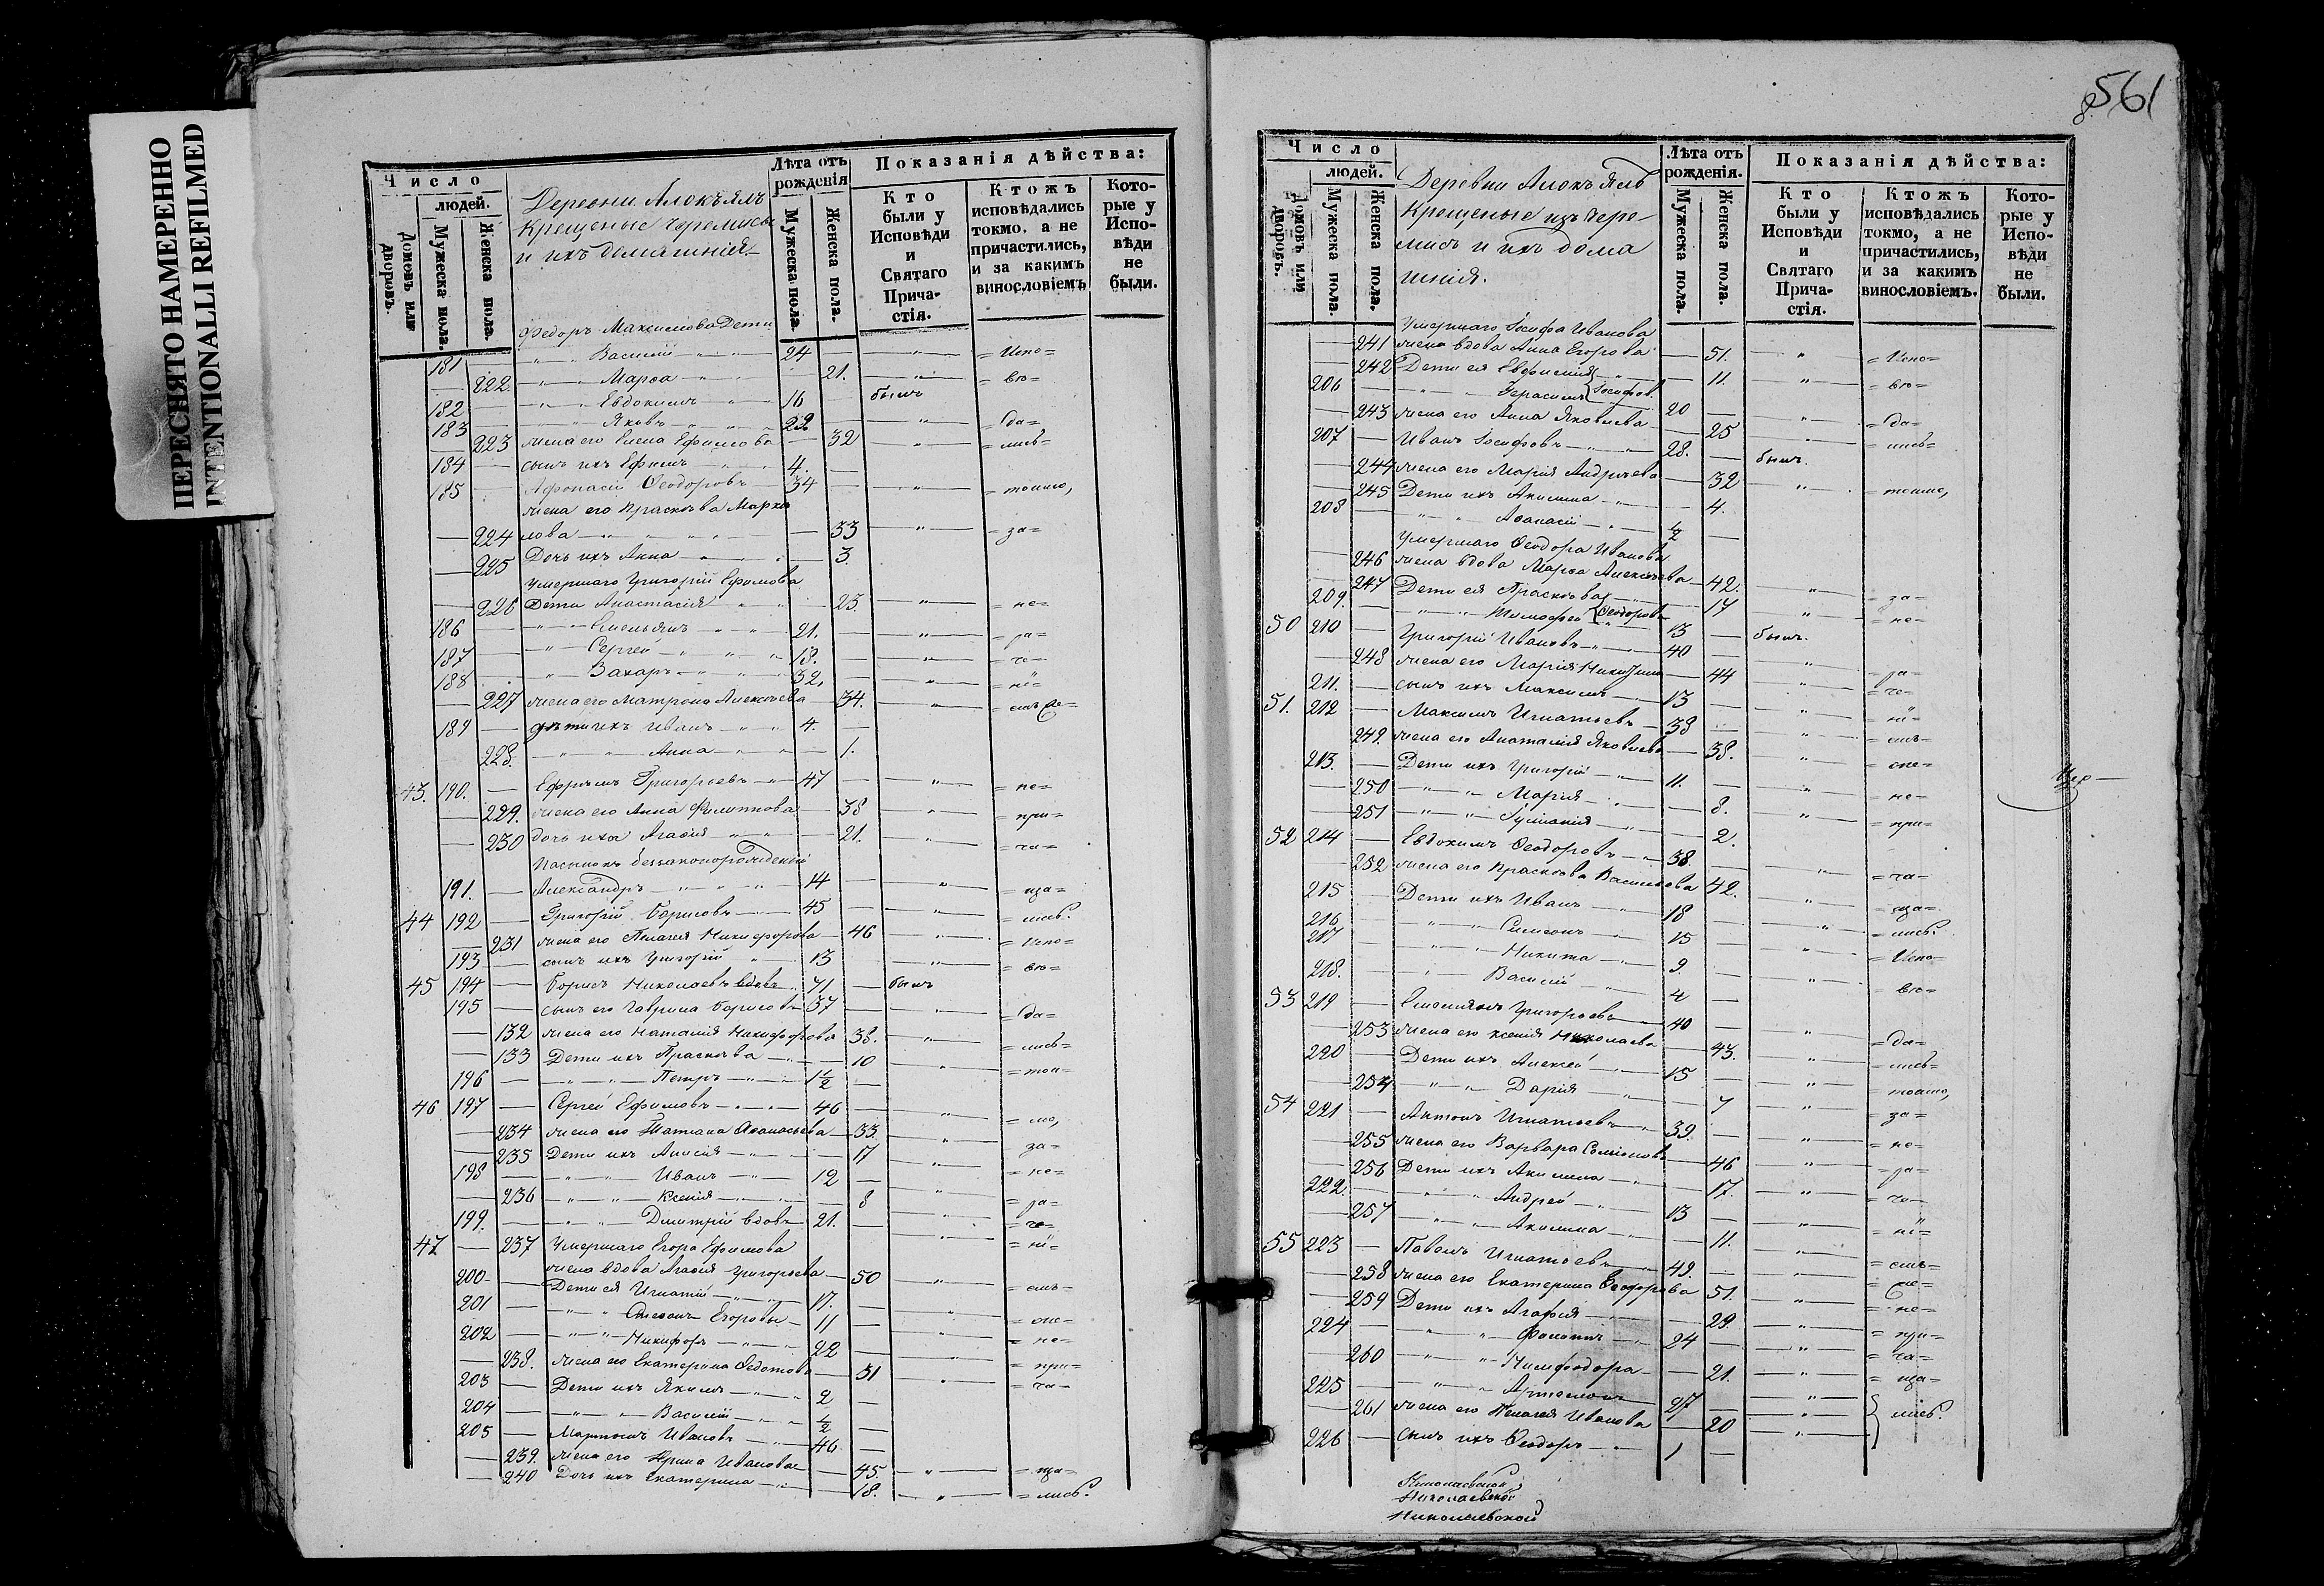 ПЕРЕСНЯТО НАМЕРЕННО
INTENTIONALLI REFILMED
Число
людей.
Домовъ или дворовъ.
Мужеска пола.
Женска пола.
Деревни Алокъялъ
Крещеные черемисы
и ихъ домашнія
Лѣта отъ рожденія
Мужеска пола.
Женска пола.
Показанія дѣйства:
Кто были у Исповѣди и Святаго Причастія.
Ктожъ исповѣдались токмо, а не причастились, и за какимъ винословіемъ
Которые у Исповѣди не были.
Федоръ Максимова Дети
181 — " — Василій — " — 24 — " — = Испо=
— 222. — " — Марѳа — " — 21. — " — = вѣ=
182 — " — Евдокимъ — " — 16 — былъ
183 — " — Яковъ — " — — " — = да=
— 223 жена его Елена Ефимова — 32 — " — = лись=
184 — сынъ ихъ Ефимъ — " — 4. —
185 — Афонасій Ѳеодоровъ — 34 — " — = токмо,
жена его Прасковья
— 224 — 33 — " — = за=
— 225 Дочь ихъ Анна — " — 3.
Умершаго Григорій Ефимова
— 226 Дети Анастасія — " — 23. — " — = не=
186 — " — Емельянъ — " — 21. — " — = ра=
187 — " — Сергей — " — 18. — " — = че=
188 — " — Захаръ — " — 32. — " — = ні=
— 227 жена его Матрона Алексѣева — 34. — " —
189 — дѣти ихъ Иванъ — " — 4. —
228. — " — Анна — " — 1.
43. 190. — Ефремъ Григорьевъ — " — 47 — " — = не=
— 229. жена его Анна Филиппова — 38 — " — = при=
— 230 дочь ихъ Агафія — " — 21. — " — = ча=
Пасынокъ беззаконорожденый
191. — Александръ — " — 14 — " — = ща=
44 192 — Григорій Борисовъ — " — 45 — " — = лись.
— 231 жена его Пелагея Никифорова — 46 — " — = Испо=
193 — сынъ ихъ Григорій — " — 13 — " — = вѣ=
45 194 — Борисъ Николаевъ вдовъ — 71 — былъ
195 — сынъ его Гаврила Борисовъ — 37 — " — = да=
— 132 жена его Наталія Никифорова 38. — " — = лись=
— 133 Дети ихъ Прасковья — " — 10 — " — = ток=
196 — " — Петръ — " — 1½ —
46 197 — Сергей Ефимовъ — " — 46 — " — = мо,
— 234 жена его Татіана Афанасьева — 33. — " — за=
— 235 Дети ихъ Анисія — " — 17 — " — = не=
198 — " — Иванъ — " — 12 —
— 236 — " — Ксенія — " — 8 — " — = ра=
199. — " — Дмитрій вдовъ — 21. — " — = че=
47 — 237 Умершаго Егора Ефимова — " — = ні=
жена вдова Агафія Григорьева — 50 — " — = емъ=
200 — Дети ея Игнатій — " — 17. —
201 — " — Симеонъ Егоровы — 11 — " — = опе=
202 — " — Никифоръ — " — 22 — " — = не=
— 238. жена его Екатерина Федотова — 31 — " — = при=
203 — Дети ихъ Якимъ — " — 2 — = ча=
204 — " — Василій — " — ½ —
205 — Мартынъ Ивановъ — 46 —
— 239. жена его Ирина Иванова — 45. — " — = ща=
— 240 Дочь ихъ Екатерина — " — 18. — " — = лись.
561
Число
людей.
Домовъ или дворовъ.
Мужеска пола.
Женска пола.
Деревни Алокъ Ялъ
Крещеные изъ чере-
мисъ и ихъ дома
шнія.
Лѣта отъ рожденія.
Мужеска пола.
Женска пола.
Показанія дѣйства:
Кто были у Исповѣди и Святаго Причастія.
Ктожъ исповѣдались токмо, а не причастились, и за какимъ винословіемъ.
Которые у Исповѣди не были.
Умершаго Іосифа Иванова
— 241 жена вдова Анна Егорова — 51. — " — = Испо=
— 242 Дети ея Евфимія — 11. — " — = вѣ=
206 — " — Герасимъ Іосифов. 20 — " — = да=
— 243 жена его Анна Яковлева — 25 — " — = лись=
207 — Иванъ Іосифовъ — " — 28. — былъ.
— 244 жена его Марія Андреева — 32 — " — = токмо,
— 245 Дети ихъ Акилина — " — 4.
208 — " — Афанасій — " — ½ —
Умершаго Ѳеодора Иванова
— 246 жена вдова Марѳа Алексѣева — 42. — " — = за=
— 247 Дети ея Прасковья — 17 — " — = не=
209. — " — Тимофей Ѳеодоров. 13 — былъ.
50 210 — Григорій Ивановъ — " — 40 — " — = ра=
— 248 жена его Марія Никитина — 44 — " — = че=
211. — сынъ ихъ Максимъ — 13 — " — = ні=
51. 212 — Максимъ Игнатьевъ — 38 — " — = емъ=
— 249. жена его Анаталия Яковлева — 38. — " — = опе=
213. — Дети ихъ Григорій — " — 11. — " — = не=
— 250 — " — Марія — " — 8. — " — = при=
— 251 — " — Іуліанія — " — 2.
52 214 — Евдокимъ Ѳеодоровъ — " — 38. — " — = ча=
— 252 жена его Прасковья Васильева 42. — " — = ща=
215 — Дети ихъ Иванъ — " — 18 — " — = лись.
216 — " — Симеонъ — " — 15 — " — = Испо=
217 — " — Никита — " — 9. — " — = вѣ=
218. — " — Василій — " — 4 —
53 219 — Емельянъ Григорьевъ — 40 — " — = да=
— 253 жена его Ксенія Николаева — 43. — " — = лись=
220 — Дети ихъ Алексей — " — 15 — " — = токмо,
— 254 — " — Дарія — " — 7 — " — = за=
54 221 — Антонъ Игнатьевъ — " — 39. — " — = не=
— 255 жена его Варвара Семіонова — 46 — " — = ра=
— 256 Дети ихъ Акилина — " — 17. — " — = че=
222. — " — Андрей — " — 13 — " — = ні=
— 257 — " — Акилина — " — 11. — " — = емъ=
55 223 — Павелъ Игнатьевъ — 49. — " — = опе=
— 258 жена его Екатерина Ѳеодорова 51. — " — = не=
— 259 Дети ихъ Агафія — " — 29. — " — = при=
224 — " — Филиппъ — " — 24 — " — = ча=
— 260 — " — Нимфодора — 21. — " — = ща=
225 — " — Артемонъ — 27 — " — лись.
— 261 жена его Пелагея Иванова — 20 — " —
226 — Сынъ ихъ Ѳеодоръ — " — 1 —
Николаевской
Николаевской
Николаевской